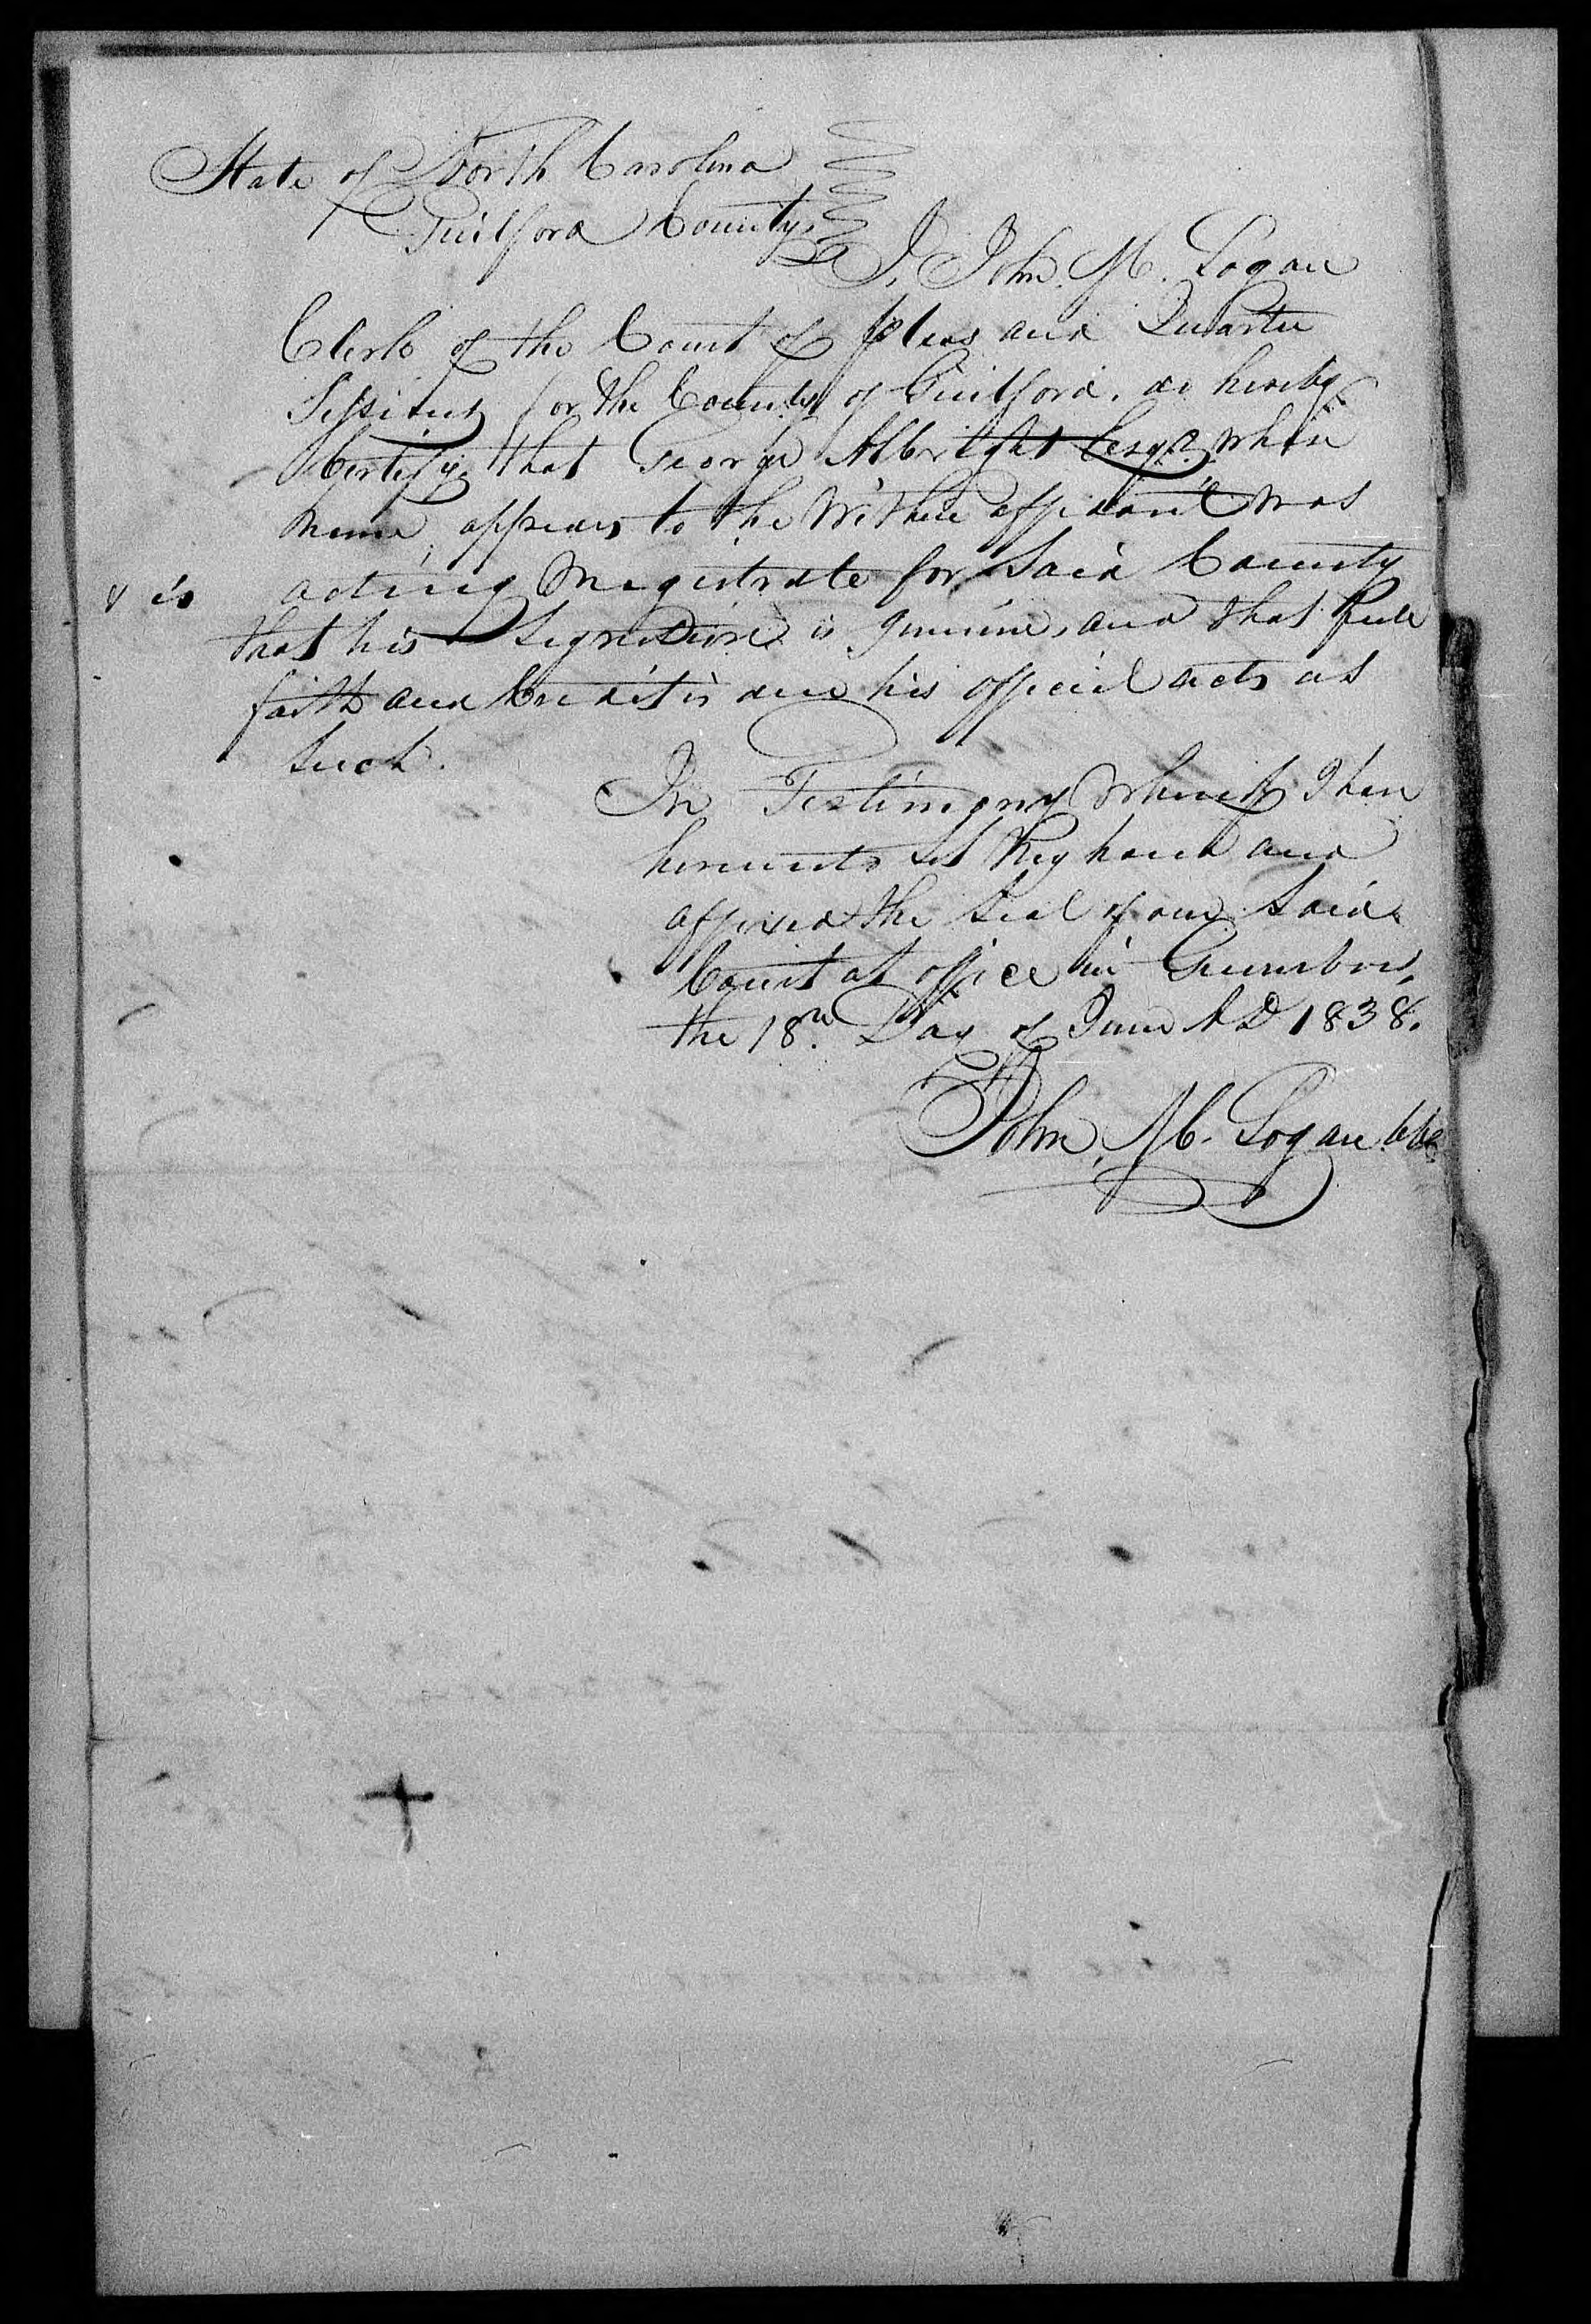 State of North Carolina
Guilford County
I, John M. Logan
Clerk of the Court of pleas and Quarter
Sessions for the County of Guilford. do hereby
Certify that George Albright Esqr. whose
name appears to the within affidavit was
& is acting Magistrate for said County
that his signature is genuine, and that full
faith and Credit is due his official acts as
such.
In Testimony whereof I have
hereunto set my hand and
affixed the Seal of our said
Court at office in Greensboro,
the 18th Day of June AD 1838.
John, M. Logan CCC